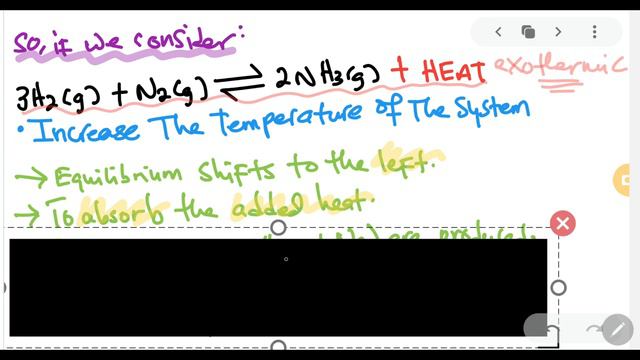 So, if we consider:
3H2(g) + N2(g) ⇌ 2NH3(g) + HEAT exothermic
• Increase The Temperature of The System
→ Equilibrium shifts to the left.
→ To absorb the added heat.
N2) are produced.